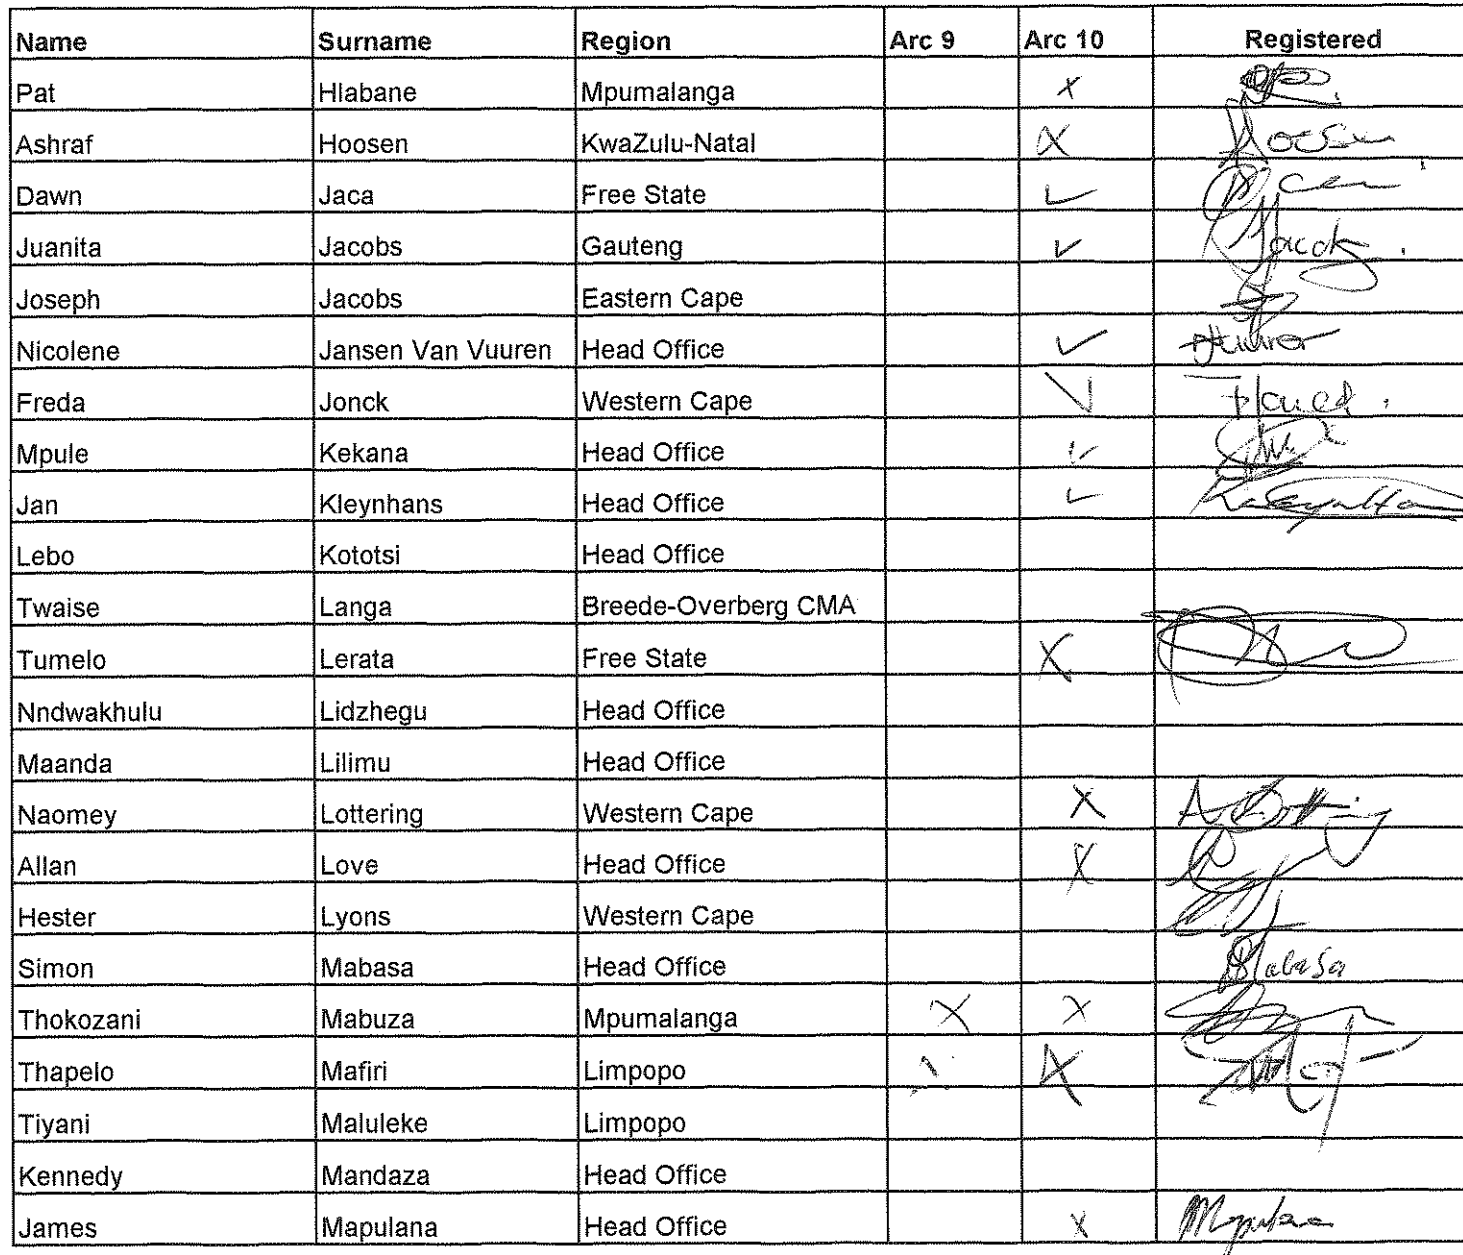 Name Surname Region Arc 9 Arc 10 Registered
Pat Hlabane Mpumalanga x
Ashraf Hoosen KwaZulu-Natal x Hoosen
Dawn Jaca Free State ✓
Juanita Jacobs Gauteng ✓ Jacobs
Joseph Jacobs Eastern Cape
Nicolene Jansen Van Vuuren Head Office ✓
Freda Jonck Western Cape ✓
Mpule Kekana Head Office ✓
Jan Kleynhans Head Office ✓
Lebo Kototsi Head Office
Twaise Langa Breede-Overberg CMA
Tumelo Lerata Free State X
Nndwakhulu Lidzhegu Head Office
Maanda Lilimu Head Office
Naomey Lottering Western Cape X
Allan Love Head Office X
Hester Lyons Western Cape
Simon Mabasa Head Office Mabasa
Thokozani Mabuza Mpumalanga X X
Thapelo Mafiri Limpopo X X
Tiyani Maluleke Limpopo
Kennedy Mandaza Head Office
James Mapulana Head Office x